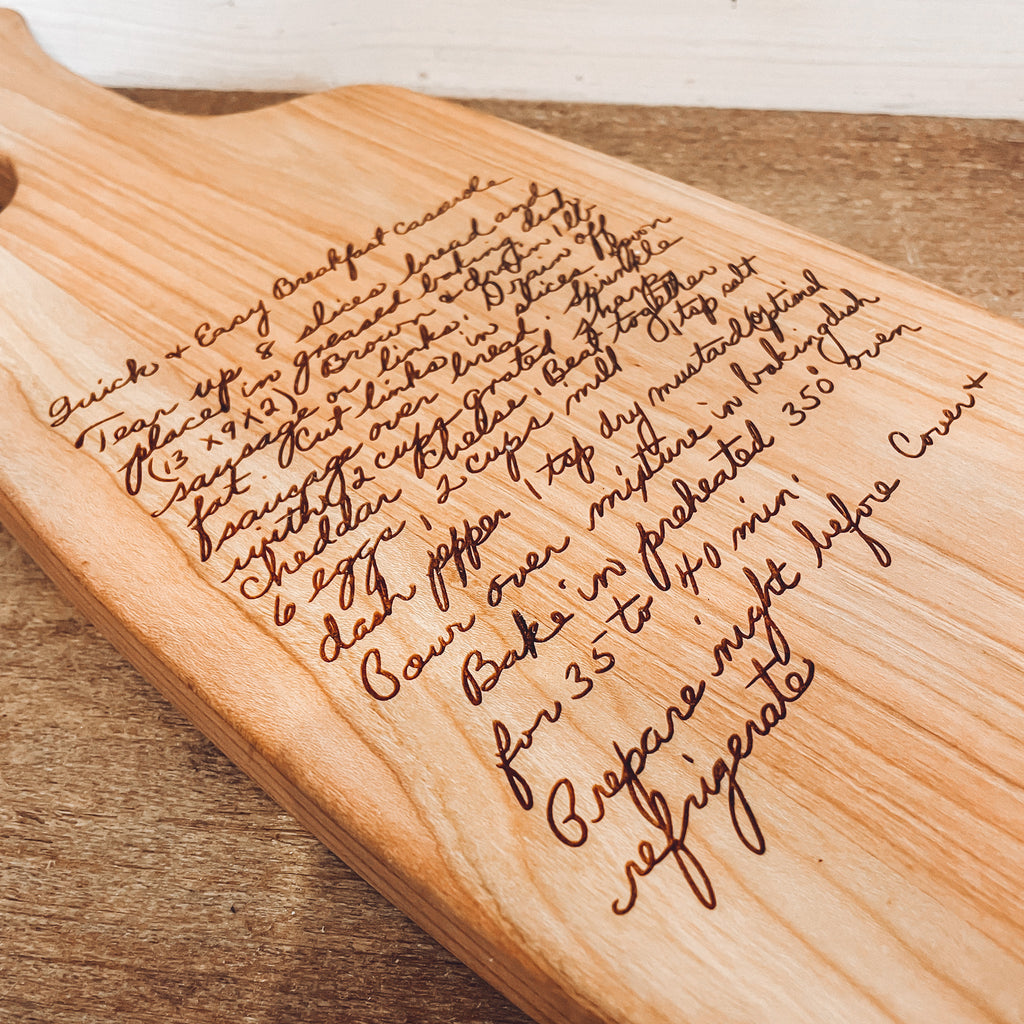 Quick & Easy Breakfast Casserole
Tear up 8 slices bread and
place in greased baking dish
(13 x 9 x 2) Brown & drain 1 lb
sausage or links. Drain off
fat. Cut links in slices. Spoon
sausage over bread. Sprinkle
with 2 cups grated sharp
cheddar cheese. Beat together
6 eggs, 2 cups milk, 1 tsp salt
dash pepper 1 tsp dry mustard optional
Pour over mixture in baking dish
Bake in preheated 350° oven
for 35 to 40 min.
Prepare night before Cover &
refrigerate